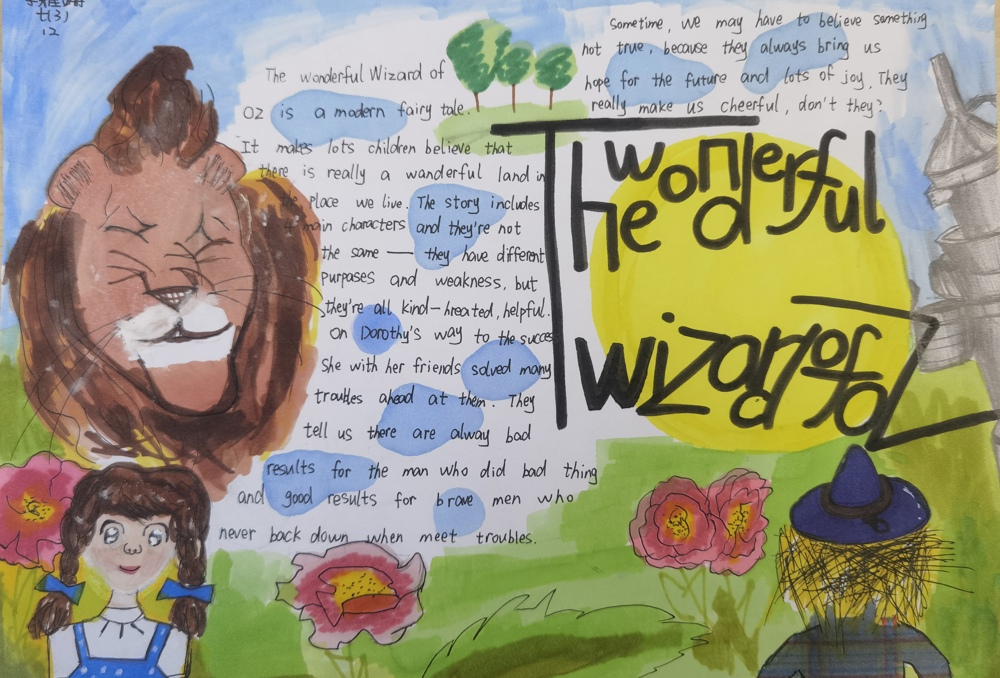 七(3)
12
The wonderful Wizard of
OZ is a modern fairy tale.
It makes lots children believe that
there is really a wanderful land in
the place we live. The story includes
4 main characters and they're not
the same — they have different
purpases and weakness, but
they're all kind-hreated, helpful.
On Dorothy's way to the succes
She with her friends solved many
troubles ahead at them. They
tell us there are alway bad
results for the man who did bad thing
and good results for brave men who
never back down when meet troubles.
Sometime, we may have to believe something
not true, because they always bring us
hope for the future and lots of joy, They
really make us cheerful, don't they?
The wonderful
Wizard of OZ